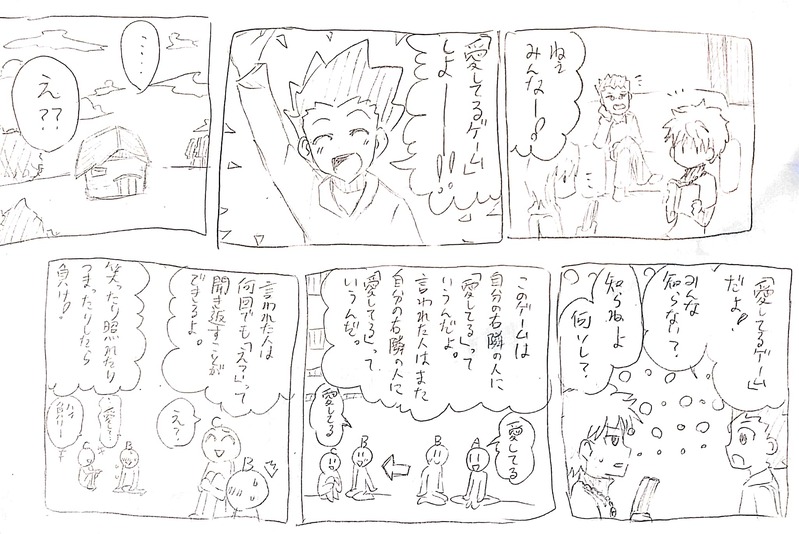 ねぇ
みんなー!
「愛してるゲーム」
しよーーー!!
……
え??
「愛してるゲーム」
だよ!
みんな
知らない?
知らねーよ
何ソレ?
このゲームは
自分の右隣の人に
「愛してる」って
いうんだよ。
言われた人はまた
自分の右隣の人に
「愛してる」って
いうんだ。
愛してる
A
B
愛してる
B
C
言われた人は
何回でも「え?」って
聞き返すことが
できるよ。
え?
C
B
笑ったり照れたり
つまったりしたら
負け!
愛…
B
C